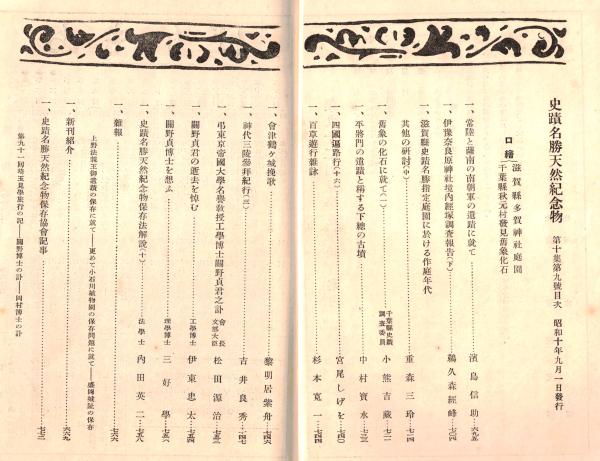 史蹟名勝天然紀念物 第十集第九號目次 昭和十年九月一日發行
口繪 滋賀縣多賀神社庭園
千葉縣秋元村發見舊象化石
一、常陸と薩南の南朝軍の遺蹟に就て 濱島信助 六九五
一、伊豫奈良原神社境内經塚調査報告(下) 鵜久森經峰 七〇四
一、滋賀縣史蹟名勝指定庭園に於ける作庭年代
其他の研討(中) 重森三玲 七一四
一、舊象の化石に就て(一) 千葉縣史蹟調査委員 小熊吉藏 七二一
一、平將門の遺蹟と稱する下總の古墳 中村資水
一、四國遍路行(十六) 宮尾しげを 七四〇
一、百草遊行雜詠 杉本寛一 七四四
一、會津鶴ケ城挽歌 黎明居紫舟 七四六
一、神代三陵參拜紀行(三) 吉井良秀 七四七
一、弔東京帝國大學名譽敎授工學博士關野貞君之訃 會長 文部大臣 松田源治 七五三
一、關野貞君の逝去を悼む 工學博士 伊東忠太 七五四
一、關野貞博士を想ふ 理學博士 三好學 七五六
一、史蹟名勝天然紀念物保存法解說(十) 法學士 內田英二 七五八
一、雜報 七六六
上野法親王御遺蹟の保存に就て——更めて小石川植物園の保存問題に就て——盛岡城址の保存
一、新刊紹介 七六九
一、史蹟名勝天然紀念物保存協會記事 七七二
第九十一回埼玉見學旅行の記——關野博士の訃——岡村博士の訃